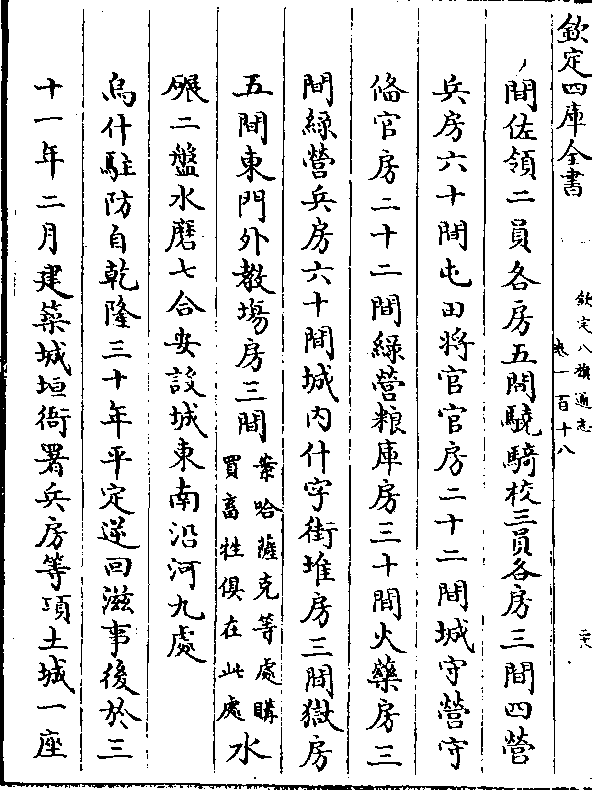 欽定四庫全書
欽定八旗通志
卷一百十八
間佐領二員各房五間驍騎校三員各房三間四營
兵房六十間屯田將官官房二十二間城守營守
俻官房二十二間綠營粮庫房三十間火藥房三
間綠營兵房六十間城內什字街堆房三間獄房
五間東門外教塲房三間案哈薩克等處購買畜牲俱在此處水
碾二盤水磨七合安設城東南沿河九處
烏什駐防自乾隆三十年平定逆回滋事後於三
十一年二月建築城垣衙署兵房等項土城一座